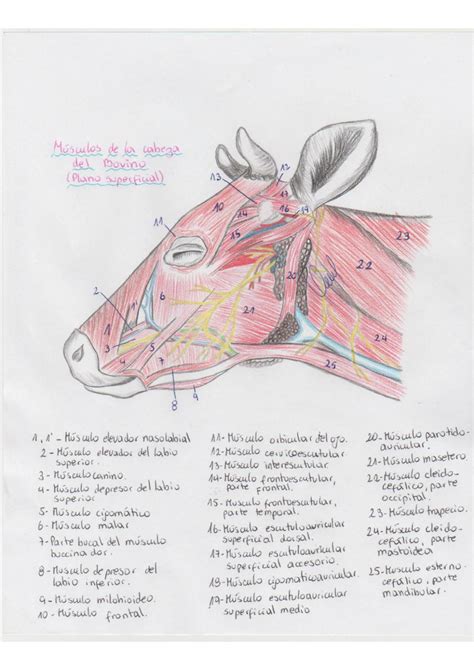 Músculos de la cabeza
del Bovino
(Plano superficial)
12
13
17
10
14
16
19
18
11
15
23
20
22
2
1
1'
6
21
24
3
4
5
7
25
8
9
1, 1' - Músculo elevador nasolabial
2 - Músculo elevador del labio
superior.
3 - Músculo canino.
4 - Músculo depresor del labio
superior
5 - Músculo cigomático
6 - Músculo malar
7 - Parte bucal del músculo
buccinador.
8 - Músculo depresor del
labio inferior.
9 - Músculo milohioideo.
10 - Músculo frontal.
11 - Músculo orbicular del ojo.
12 - Músculo cervicoescutular
13 - Músculo interescutular
14 - Músculo frontoescutular,
parte frontal.
15 - Músculo frontoescutular,
parte temporal.
16 - Músculo escutuloauricular
superficial dorsal.
17 - Músculo escutuloauricular
superficial accesorio.
18 - Músculo cigomaticoauricular.
19 - Músculo escutuloauricular
superficial medio
20 - Músculo parotido-
auricular.
21 - Músculo masetero
22 - Músculo cleido-
cefálico, parte
occipital.
23 - Músculo trapecio.
24 - Músculo cleido-
cefálico, parte
mastoidea
25 - Músculo esterno-
cefálico, parte
mandibular.